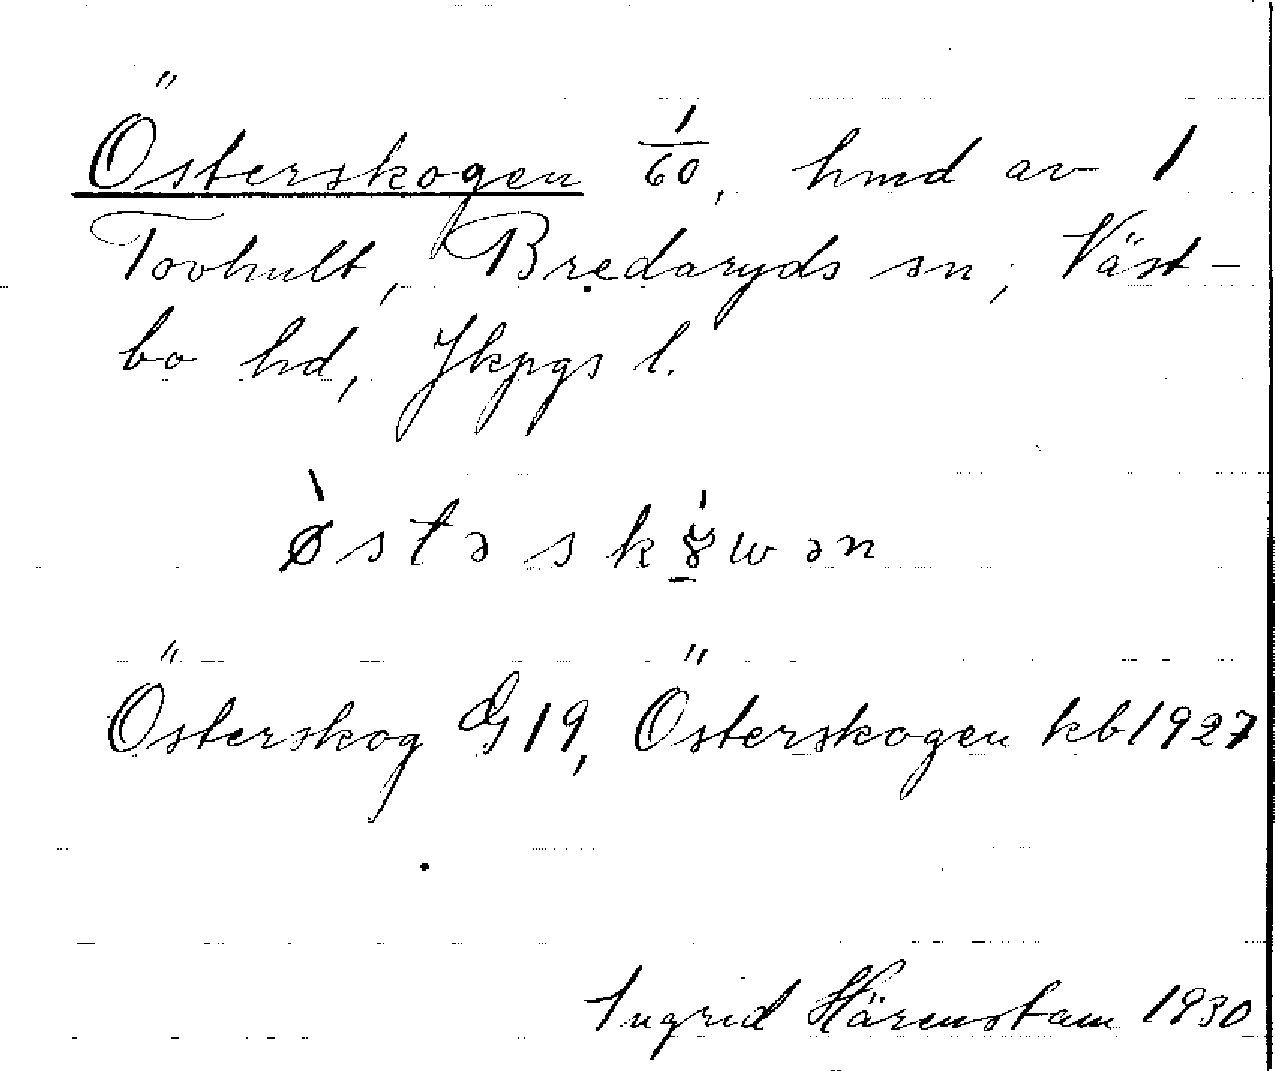 Österskogen 1/60, hmd av 1
Tovhult, Bredaryds sn, Väst-
bo hd, Jkpgs l.
Österskog G 19, Österskogen kb 1927
Ingrid Härenstam 1930